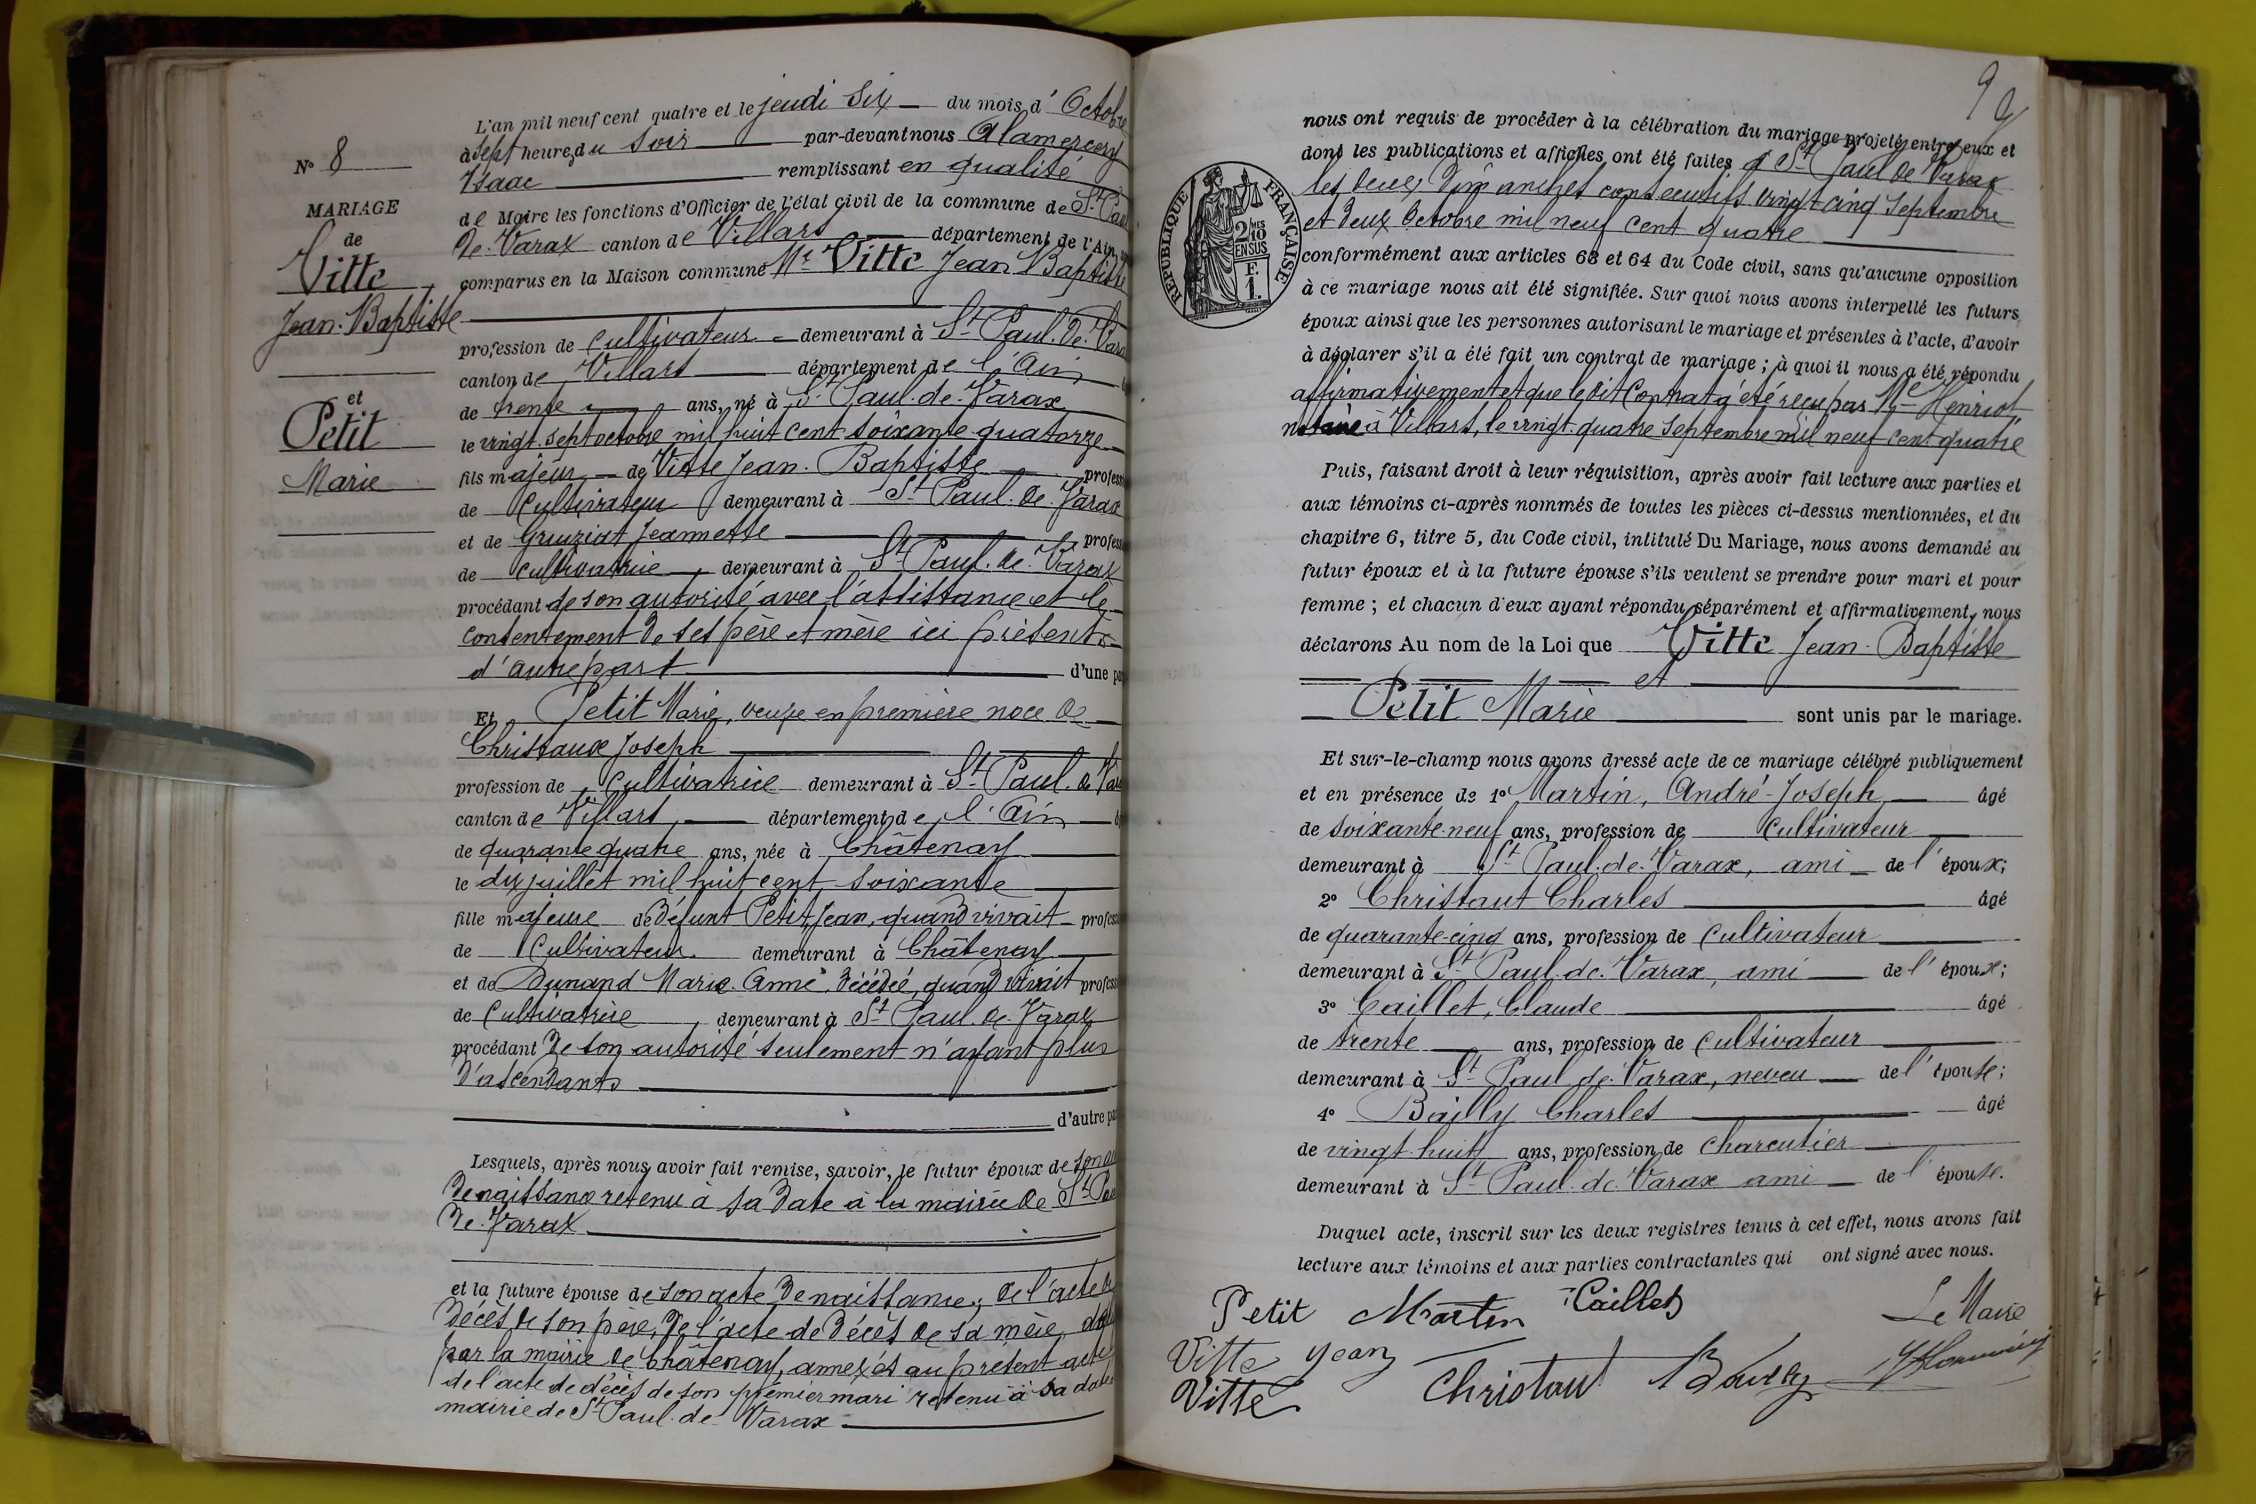 N° 8
MARIAGE
de
Vitte
Jean-Baptiste
et
Petit
Marie
L'an mil neuf cent quatre et le jeudi six du mois d'Octobre
à sept heures du soir par-devant nous Alamercery
Isaac remplissant en qualité
de Maire les fonctions d'Officier de l'état civil de la commune de St Paul
de Varax canton de Villars département de l'Ain,
comparus en la Maison commune Mr Vitte Jean Baptiste
profession de cultivateur demeurant à St Paul de Varax
canton de Villars département de l'Ain
de trente ans, né à St Paul de Varax
le vingt sept octobre mil huit cent soixante quatorze
fils majeur de Vitte Jean-Baptiste profession
de cultivateur demeurant à St Paul de Varax
et de Gruziat Jeannette profession
de cultivatrice demeurant à St Paul de Varax
procédant de son autorité avec l'assistance et le
consentement de ses père et mère ici présents
d'autre part d'une part
Et Petit Marie, veuve en première noce de
Christaux Joseph
profession de cultivatrice demeurant à St Paul de Varax
canton de Villars, département de l'Ain
de quarante quatre ans, née à Châtenay
le dix juillet mil huit cent soixante
fille majeure de défunt Petit Jean, quand vivait profession
de cultivateur demeurant à Châtenay
et de Dunand Marie Anne, décédée, quand vivait profession
de cultivatrice demeurant à St Paul de Varax
procédant de son autorité seulement n'ayant plus
d'ascendants
d'autre part
Lesquels, après nous avoir fait remise, savoir, le futur époux de son acte
de naissance retenu à sa date à la mairie de St Paul
de Varax
et la future épouse de son acte de naissance, de l'acte de
décès de son père, de l'acte de décès de sa mère,
par la mairie de Châtenay, annexés au présent acte
de l'acte de décès de son premier mari retenu à sa date
mairie de St Paul de Varax
RÉPUBLIQUE FRANÇAISE
2/10
EN SUS
F.
1.
nous ont requis de procéder à la célébration du mariage projeté entre eux et
dont les publications et affiches ont été faites à St Paul de Varax
les deux dimanches consécutifs vingt cinq septembre
et deux octobre mil neuf cent quatre
conformément aux articles 63 et 64 du Code civil, sans qu'aucune opposition
à ce mariage nous ait été signifiée. Sur quoi nous avons interpellé les futurs
époux ainsi que les personnes autorisant le mariage et présentes à l'acte, d'avoir
à déclarer s'il a été fait un contrat de mariage ; à quoi il nous a été répondu
affirmativement et que le dit contrat a été reçu par Me Henriot
notaire à Villars, le vingt quatre septembre mil neuf cent quatre
Puis, faisant droit à leur réquisition, après avoir fait lecture aux parties et
aux témoins ci-après nommés de toutes les pièces ci-dessus mentionnées, et du
chapitre 6, titre 5, du Code civil, intitulé Du Mariage, nous avons demandé au
futur époux et à la future épouse s'ils veulent se prendre pour mari et pour
femme ; et chacun d'eux ayant répondu séparément et affirmativement, nous
déclarons Au nom de la Loi que Vitte Jean-Baptiste
et
Petit Marie sont unis par le mariage.
Et sur-le-champ nous avons dressé acte de ce mariage célébré publiquement
et en présence de 1° Martin, André-Joseph âgé
de soixante-neuf ans, profession de cultivateur
demeurant à St Paul de Varax, ami de l'époux;
2° Christaut Charles âgé
de quarante-cinq ans, profession de cultivateur
demeurant à St Paul de Varax, ami de l'époux;
3° Caillet, Claude âgé
de trente ans, profession de cultivateur
demeurant à St Paul de Varax, neveu de l'épouse;
4° Bailly Charles âgé
de vingt huit ans, profession de charcutier
demeurant à St Paul de Varax ami de l'épouse.
Duquel acte, inscrit sur les deux registres tenus à cet effet, nous avons fait
lecture aux témoins et aux parties contractantes qui ont signé avec nous.
Petit Martin Caillet Le Maire
Vitte Jean
Vitte Christaut